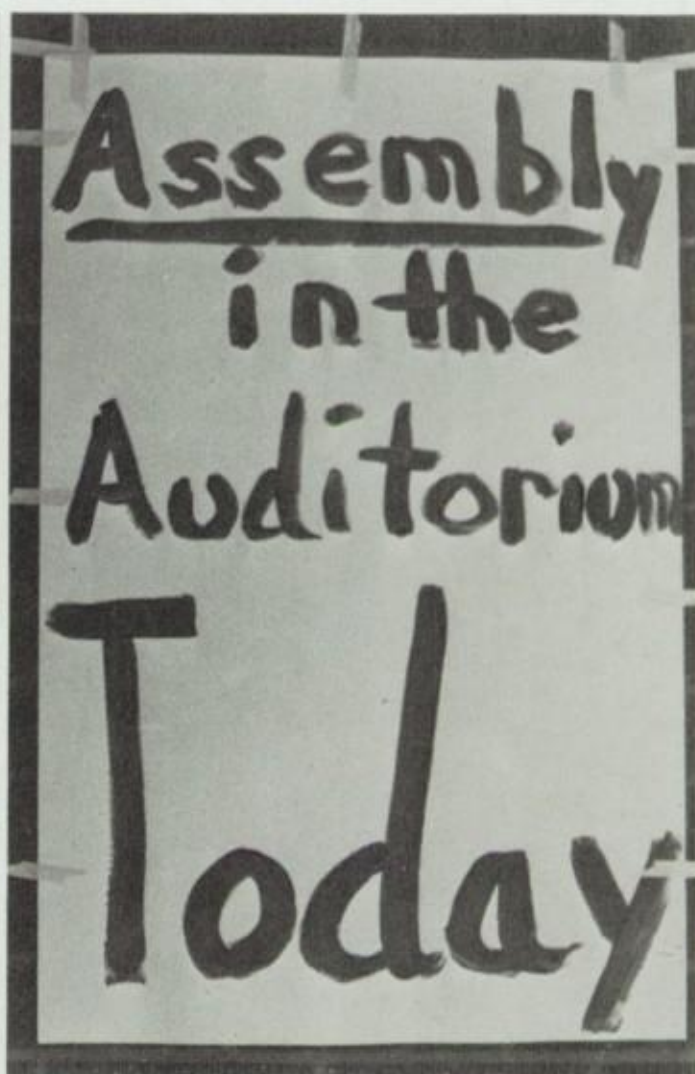 Assembly
in the
Auditorium
Today